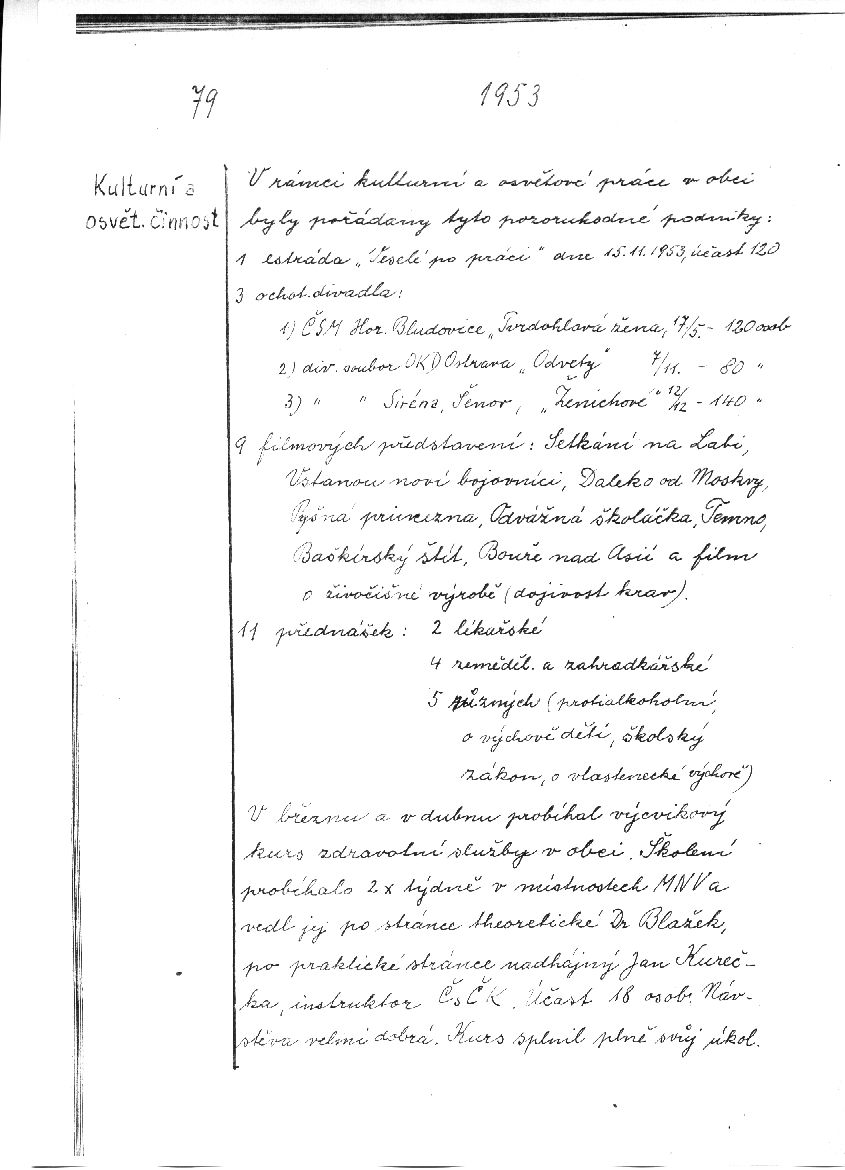 79
1953
Kulturní a
osvět. činnost
V rámci kulturní a osvětové práce v obci
byly pořádany tyto pozoruhodné podniky:
1 estráda „Veselé po práci" dne 15.11.1953, účast 120
3 ochot. divadla:
1) ČSM Hor. Bludovice „Tvrdohlavá žena, 17/5. - 120 osob
2) div. soubor OKD Ostrava „Odvety" 7/11. - 80 "
3) " " Siréna, Šenov, „Ženichové" 12/12 - 140 "
9 filmových představení: Setkání na Labi,
Vstanou noví bojovníci, Daleko od Moskvy,
Pyšná princezna, Odvážná školačka, Temno,
Baškirský štít, Bouře nad Asií a film
o živočišné výrobě (dojivost krav).
11 přednášek: 2 lékařské
4 zeměděl. a zahradkářské
5 různých (protialkoholní,
o výchově dětí, školský
zákon, o vlastenecké výchově)
V březnu a v dubnu probíhal výcvikový
kurs zdravotní služby v obci. Školení
probíhalo 2x týdně v místnostech MNV a
vedl jej po stránce theoretické Dr Blažek,
po praktické stránce nadhájný Jan Kureč-
ka, instruktor ČsČK. Účast 18 osob. Náv-
stěva velmi dobrá. Kurs splnil plně svůj úkol.